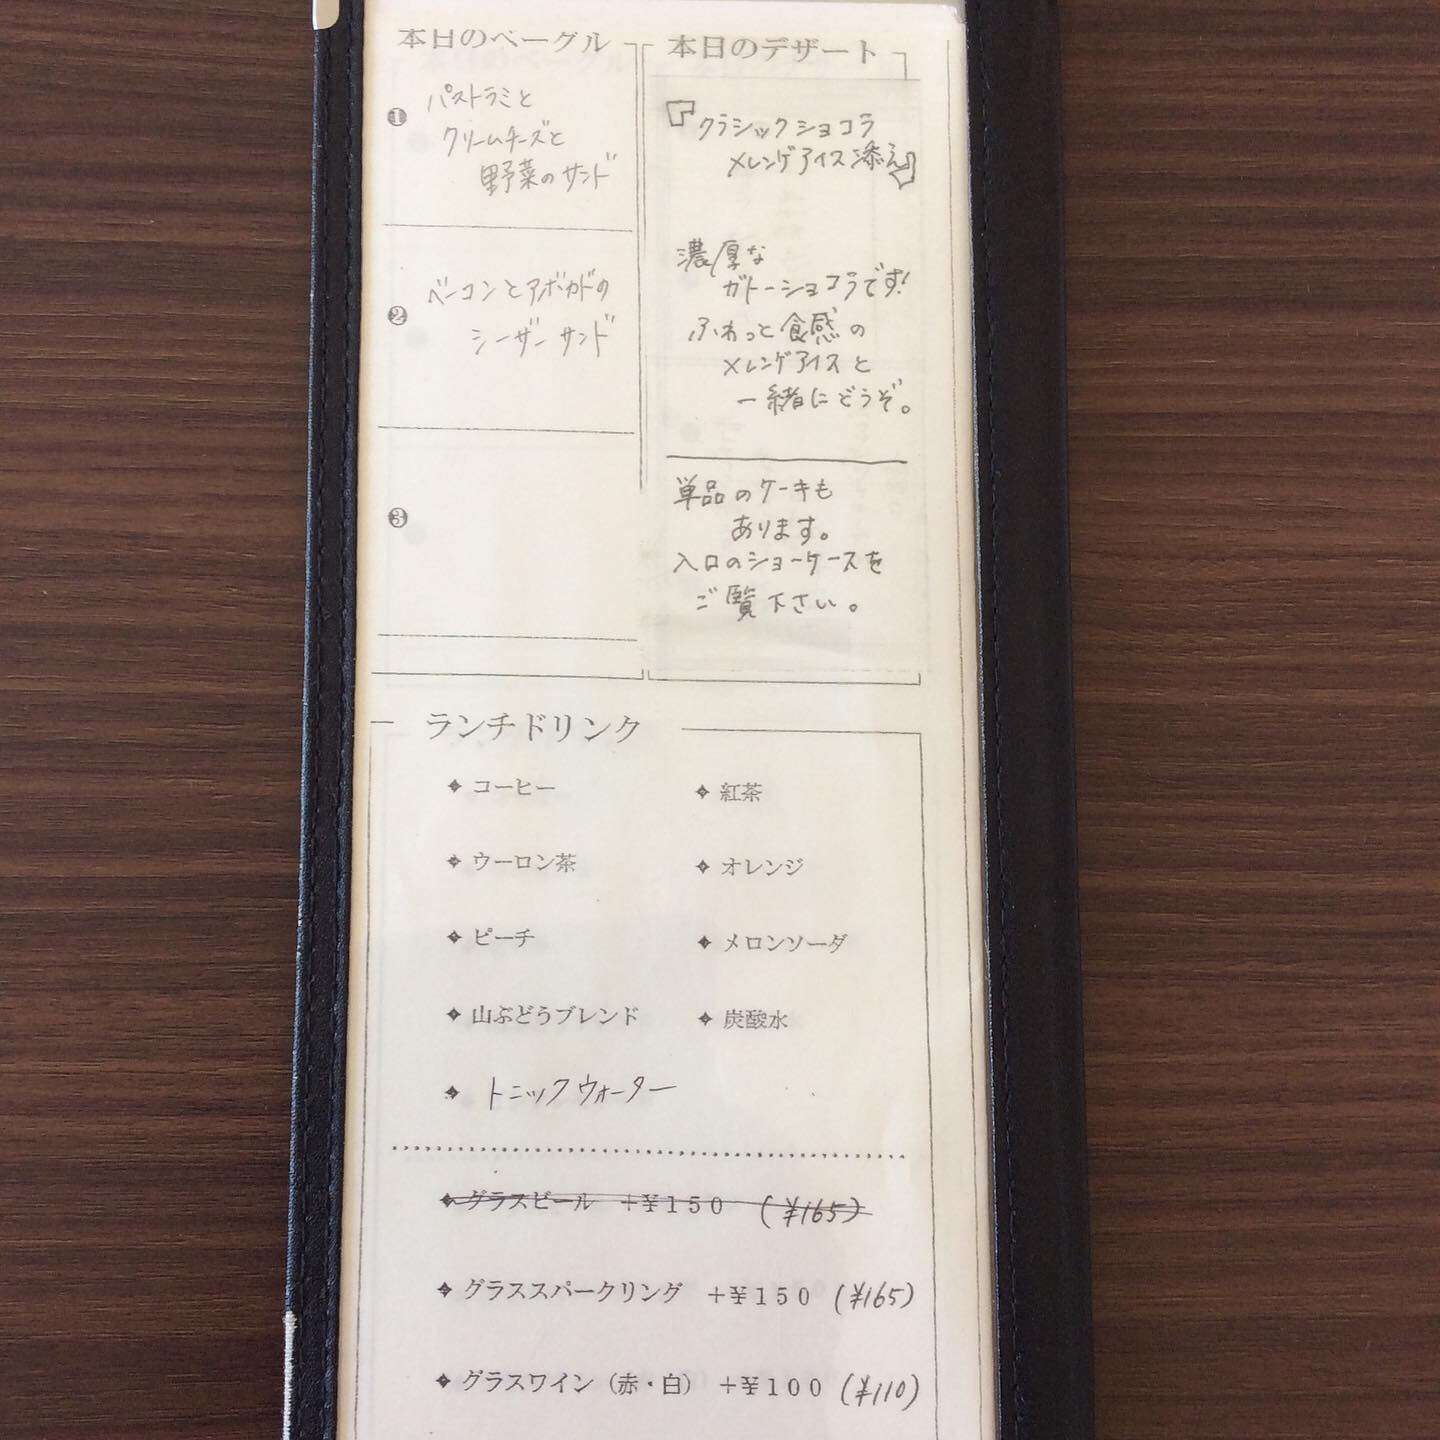 本日のベーグル
❶ パストラミと
クリームチーズと
野菜のサンド
❷ ベーコンとアボカドの
シーザーサンド
❸
本日のデザート
『クラシックショコラ
メレンゲアイス添え』
濃厚な
ガトーショコラです!
ふわっと食感の
メレンゲアイスと
一緒にどうぞ。
単品のケーキも
あります。
入口のショーケースを
ご覧下さい。
ランチドリンク
コーヒー
紅茶
ウーロン茶
オレンジ
ピーチ
メロンソーダ
山ぶどうブレンド
炭酸水
トニックウォーター
グラスビール +¥150 (¥165)
グラススパークリング +¥150 (¥165)
グラスワイン(赤・白) +¥100 (¥110)